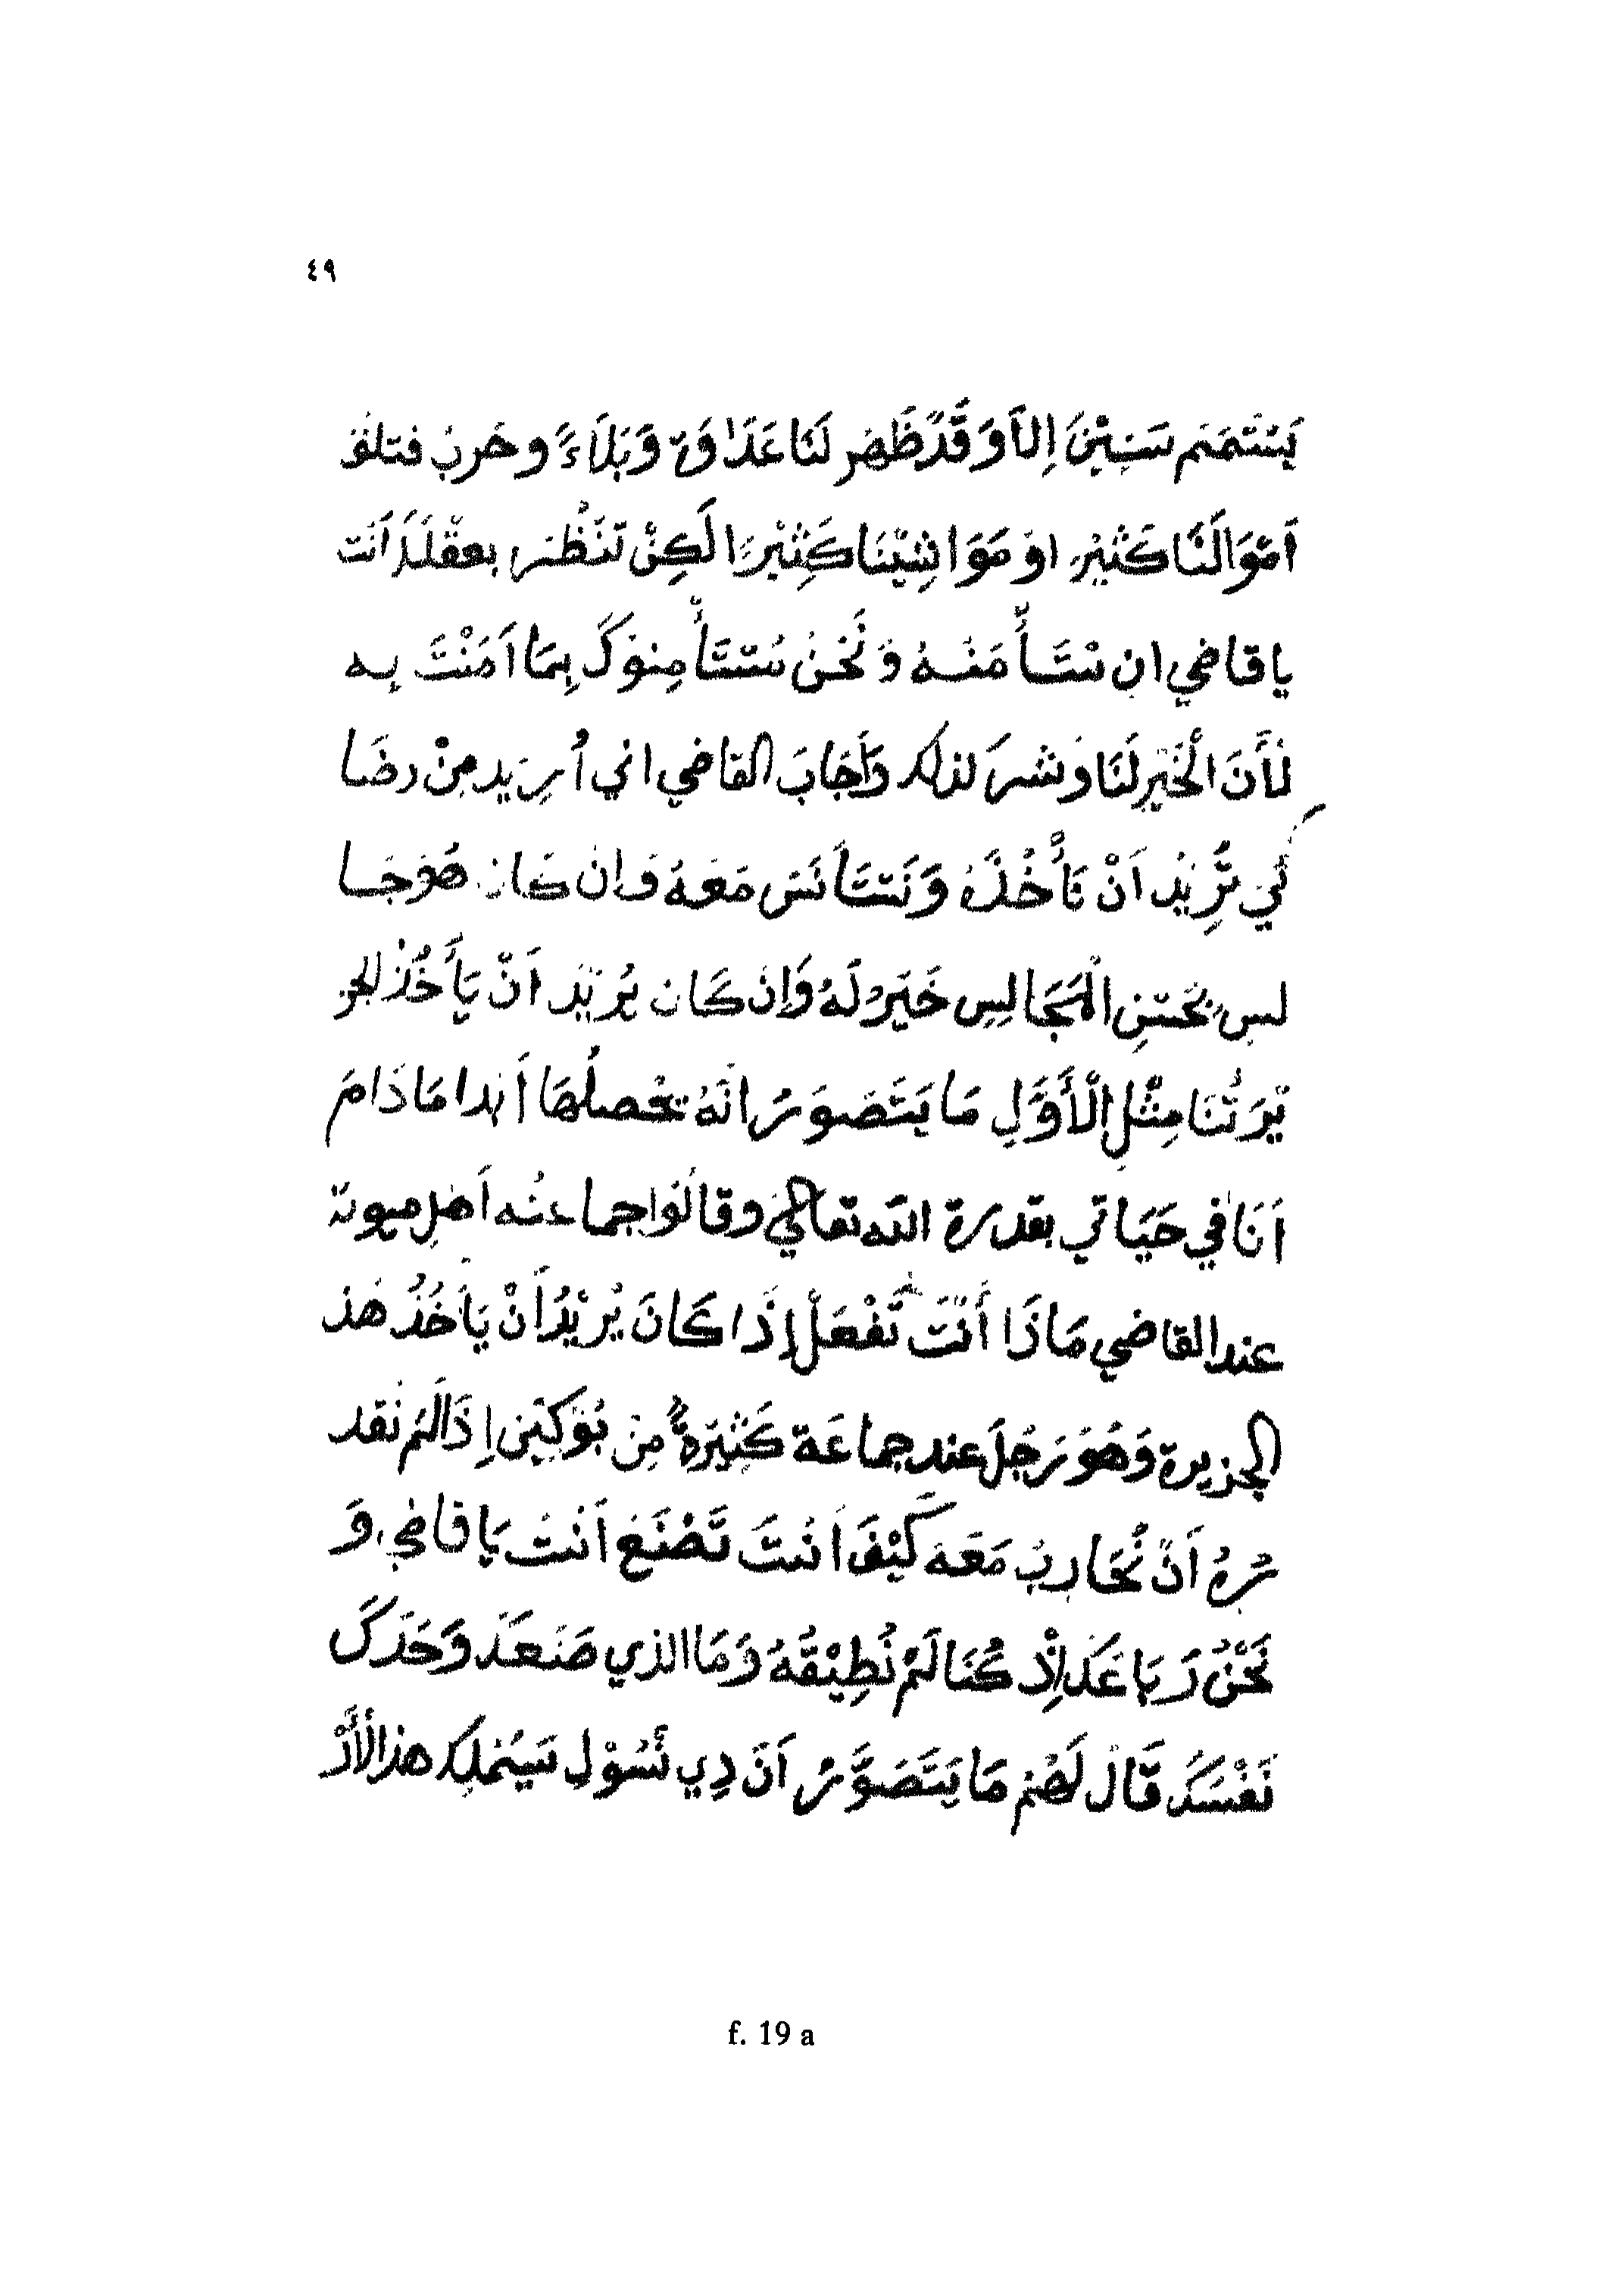 ٤٩
يَسْتَمَم سَنِيْنَ اِلاَّ وَقَدْ ظَهَر لَنَا عَدَاوَة وَبَلَاءً وحَربْ فتلف
اَمْوَالَنَا كَثِيْر اوْ مَوَاشِيْنَا كَثِيْرًا لَكِنْ تَنْظُر بعقْلَكَ اَنْتَ
يا قاضي ان نسْتَأْمَنَهُ وَنَحْنُ نسْتَأْمِنوكَ بِمَا اَمَنْتَ بِه
لأَنَ الْخَيْر لَنَا وَشر لذلك وَأَجَابَ القاضي اني اُرِيَد مِنْ رضَا
كي يُرِيْدُ اَنْ يَأْخُذَهُ وَنَسْتَأْنَسْ مَعَهُ فَاِنْ كَانَ هُوَ جَا
لس بحَسَنِ الْمَجَالِسِ خَيْر لَهُ وَاِنْ كَان يُرِيْد اَنْ يَأْخُذْ الجز
يْرَتُنَا مِثْلِ الْأَوَّلِ مَا يَتَصَوَر اِنَهُ يحْصلُهَا أَبَدا مَا دَامَ
اَنَا فِي حَيَاتي بقدرة الله تعالى وقالُوا جماعتُه اَهْلِ ميوتة
عند القاضي مَاذَا أَنْتَ تَفْعَلْ إِذَا كَانَ يُرِيْدُ أَنْ يَأْخُذُ هَذ
الجزيرة وَهُوَ رَجُلَ عند جماعَة كَثِيْرَةٌ مِنْ بُوْكِيْن اِذَا لَمْ نَقد
رهُ اَنْ نُحَارِبْ مَعَهَ كَيْفَ اَنْتَ تَصْنَعْ اَنْتَ يَا قاضِي وَ
نَحْنُ رَبَاعَكَ اِذْ كُنَا لَمْ نُطِيْقُهُ وَمَا الذي صَنعَكَ وَحَدَكَ
نَفْسَكَ قَالَ لَهُمْ مَا يَتَصَوَّر اَنَ دِي نسُوْلِ سَيُمْلِك هذ الْأَرْ
f. 19 a